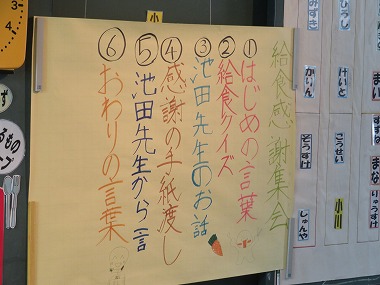 給食感謝集会
①はじめの言葉
②給食クイズ
③池田先生のお話
④感謝の手紙渡し
⑤池田先生から一言
⑥おわりの言葉
小
みずき
ひろし
かりん
けいと
そうすけ
こうせい
じゅんや
小川
まい
まな
りゅう
3
4